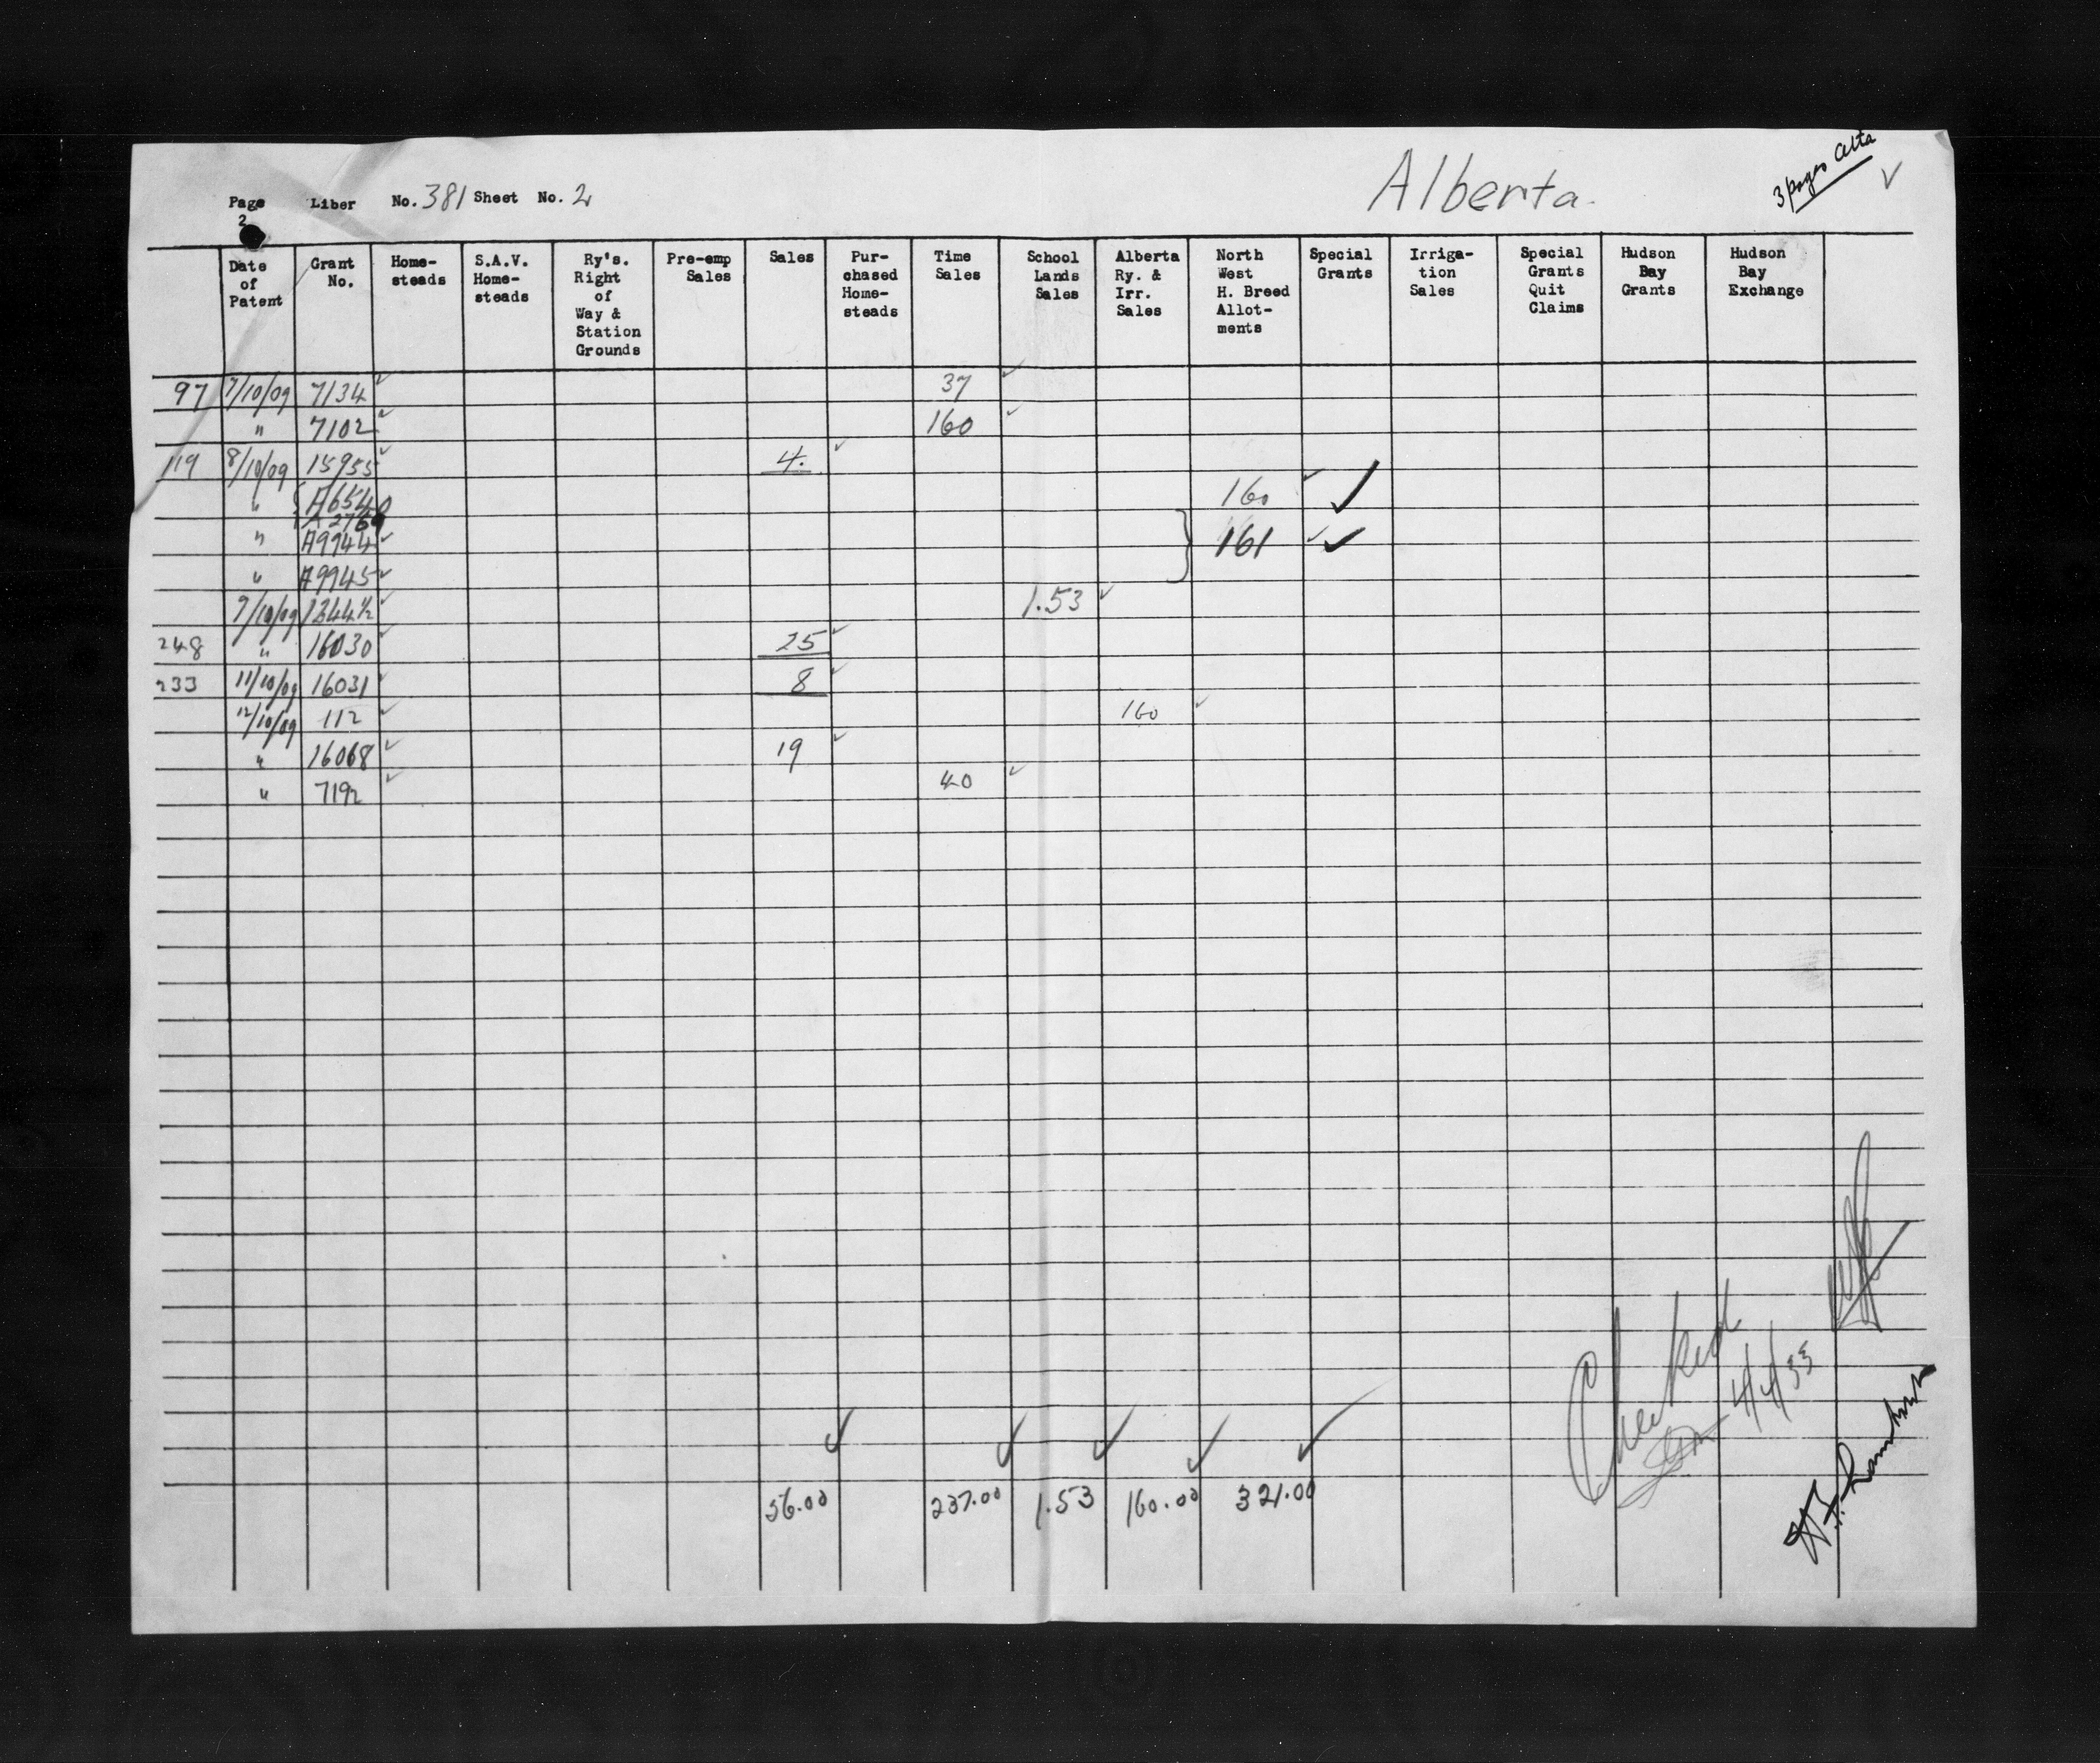 3 pages Alta
Alberta.
Page 2 Liber No. 381 Sheet No. 2
Date of Patent | Grant No. | Home-steads | S.A.V. Home-steads | Ry's. Right of Way & Station Grounds | Pre-emp Sales | Sales | Pur-chased Home-steads | Time Sales | School Lands Sales | Alberta Ry. & Irr. Sales | North West H. Breed Allot-ments | Special Grants | Irriga-tion Sales | Special Grants Quit Claims | Hudson Bay Grants | Hudson Bay Exchange
97 7/10/09 7134 ✓ 37 ✓
" 7102 ✓ 160 ✓
119 8/10/09 15955 ✓ 4. ✓
" { A6540 160 ✓ ✓
A2760
" A9944 ✓ } 161 ✓ ✓
" A9945 ✓
9/10/09 1244½ ✓ 1.53 ✓
248 " 16030 ✓ 25 ✓
233 11/10/09 16031 ✓ 8 ✓
12/10/09 112 ✓ 160 ✓
" 16068 ✓ 19 ✓
" 7192 ✓ 40 ✓
56.00 ✓ 237.00 ✓ 1.53 ✓ 160.00 ✓ 321.00 ✓
Checked
4/4/33